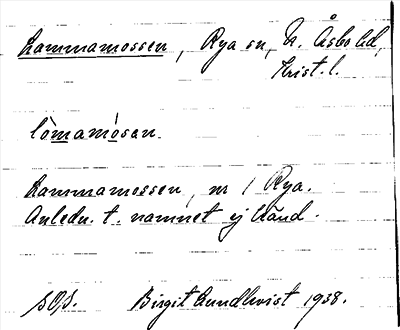 Lammamossen, Rya sn, N. Åsbo hd,
Krist. l.
lòmamósan.
Lammamossen, nr 1 Rya.
Anledn. t. namnet ej känd.
SOJ. Birgit Lundkvist 1938.